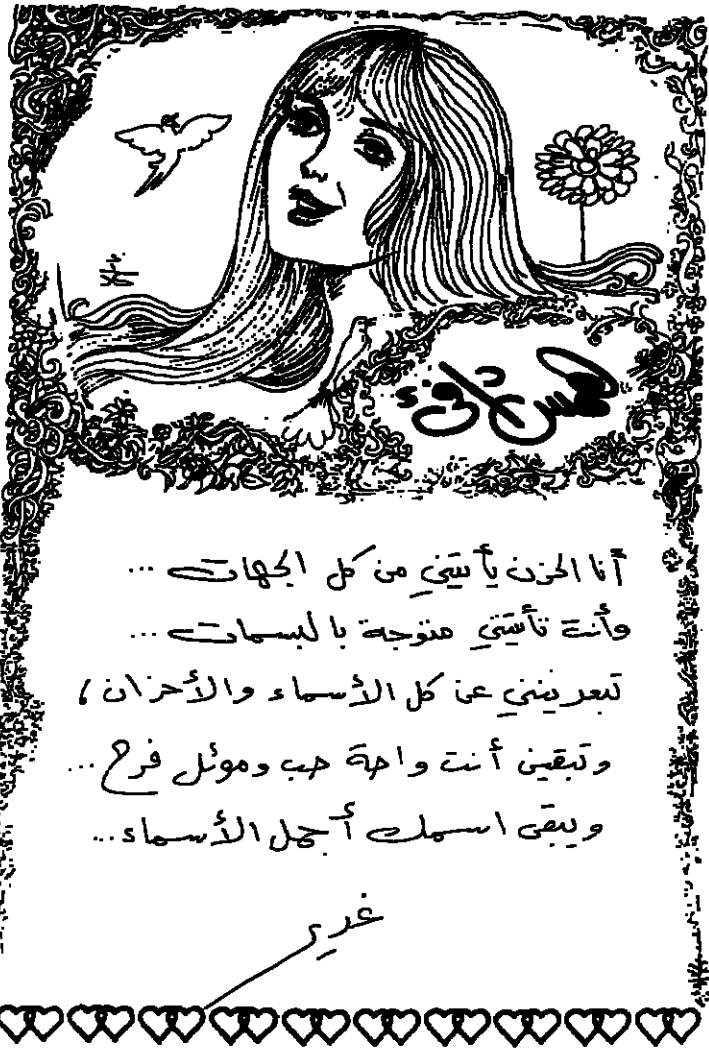 همس دافئ
أنا الحزن يأتيني من كل الجهات ...
وأنت تأتيني متوجة بالبسمات ...
تبعدينني عن كل الأسماء والأحزان ،
وتبقين أنت واحة حب وموئل فرح ...
ويبقى اسمك أجمل الأسماء ...
غدير